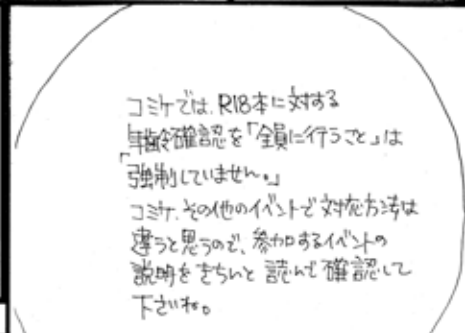 コミケでは、R18本に対する
年齢確認を「全員に行うこと」は
「強制していません。」
コミケ、その他のイベントで対応方法は
違うと思うので、参加するイベントの
説明をきちんと読んで確認して
下さいね。